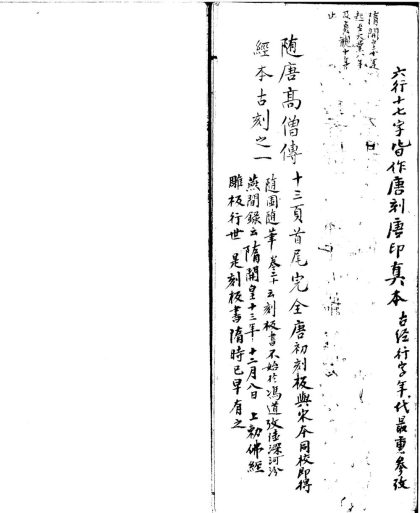 六行十七字皆作唐刻唐印真本 古经行字年代最重参攷
隋開皇
十三頁首尾完全唐初刻板與宋本同校即得
随唐高僧傳
經本古刻之一
随園随筆 卷二十云刻板書不始於馮道攷陸深河汾
燕間錄云隋開皇十三年十二月八日 上勅佛經
雕板行世 是刻板書隋時已早有之